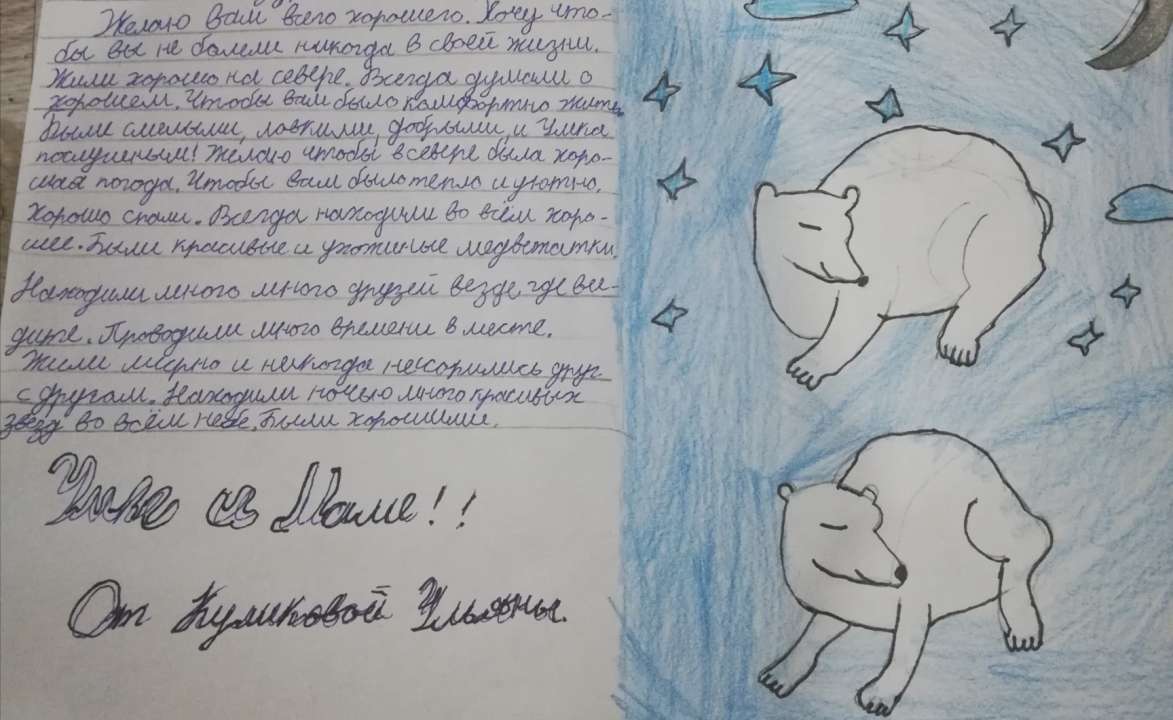 Желаю вам всего хорошего. Хочу что-
бы вы не болели никогда в своей жизни.
Жили хорошо на севере. Всегда думали о
хорошем. Чтобы вам было комфортно жить,
Были смелыми, ловкими, добрыми, и Умка
послушеным! Желаю чтобы в севере была хоро-
шая погода. Чтобы вам было тепло и уютно.
Хорошо спали. Всегда находили во всём хоро-
шее. Были красивые и ухоженые медвежатки.
Находили много много друзей везде, где ви-
дите. Проводили много времени в месте.
Жили мирно и никогда несорились друг
с другом. Находили ночью много красивых
звезд во всём небе. Были хорошими.
Умке и Маме!!
От Куликовой Ульяны.